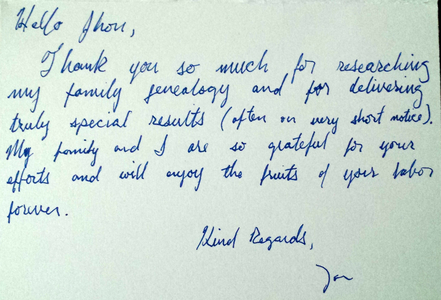 Hello Jhon,
Thank you so much for researching
my family genealogy and for delivering
truly special results (often on very short notice).
My family and I are so grateful for your
efforts and will enjoy the fruits of your labor
forever.
Kind Regards,
Jon